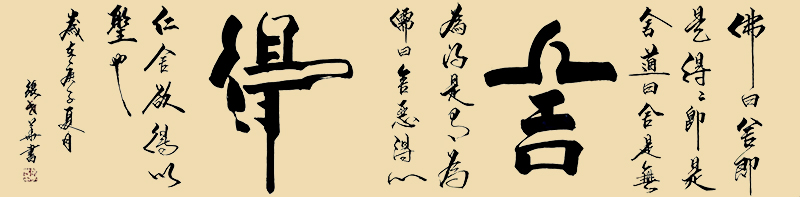 佛曰舍即
是得〻即是
舍道曰舍是無
舍
為得是有為
儒曰舍惡得以
得
仁舍欲得以
聖也
歲在庚子夏月
張華書